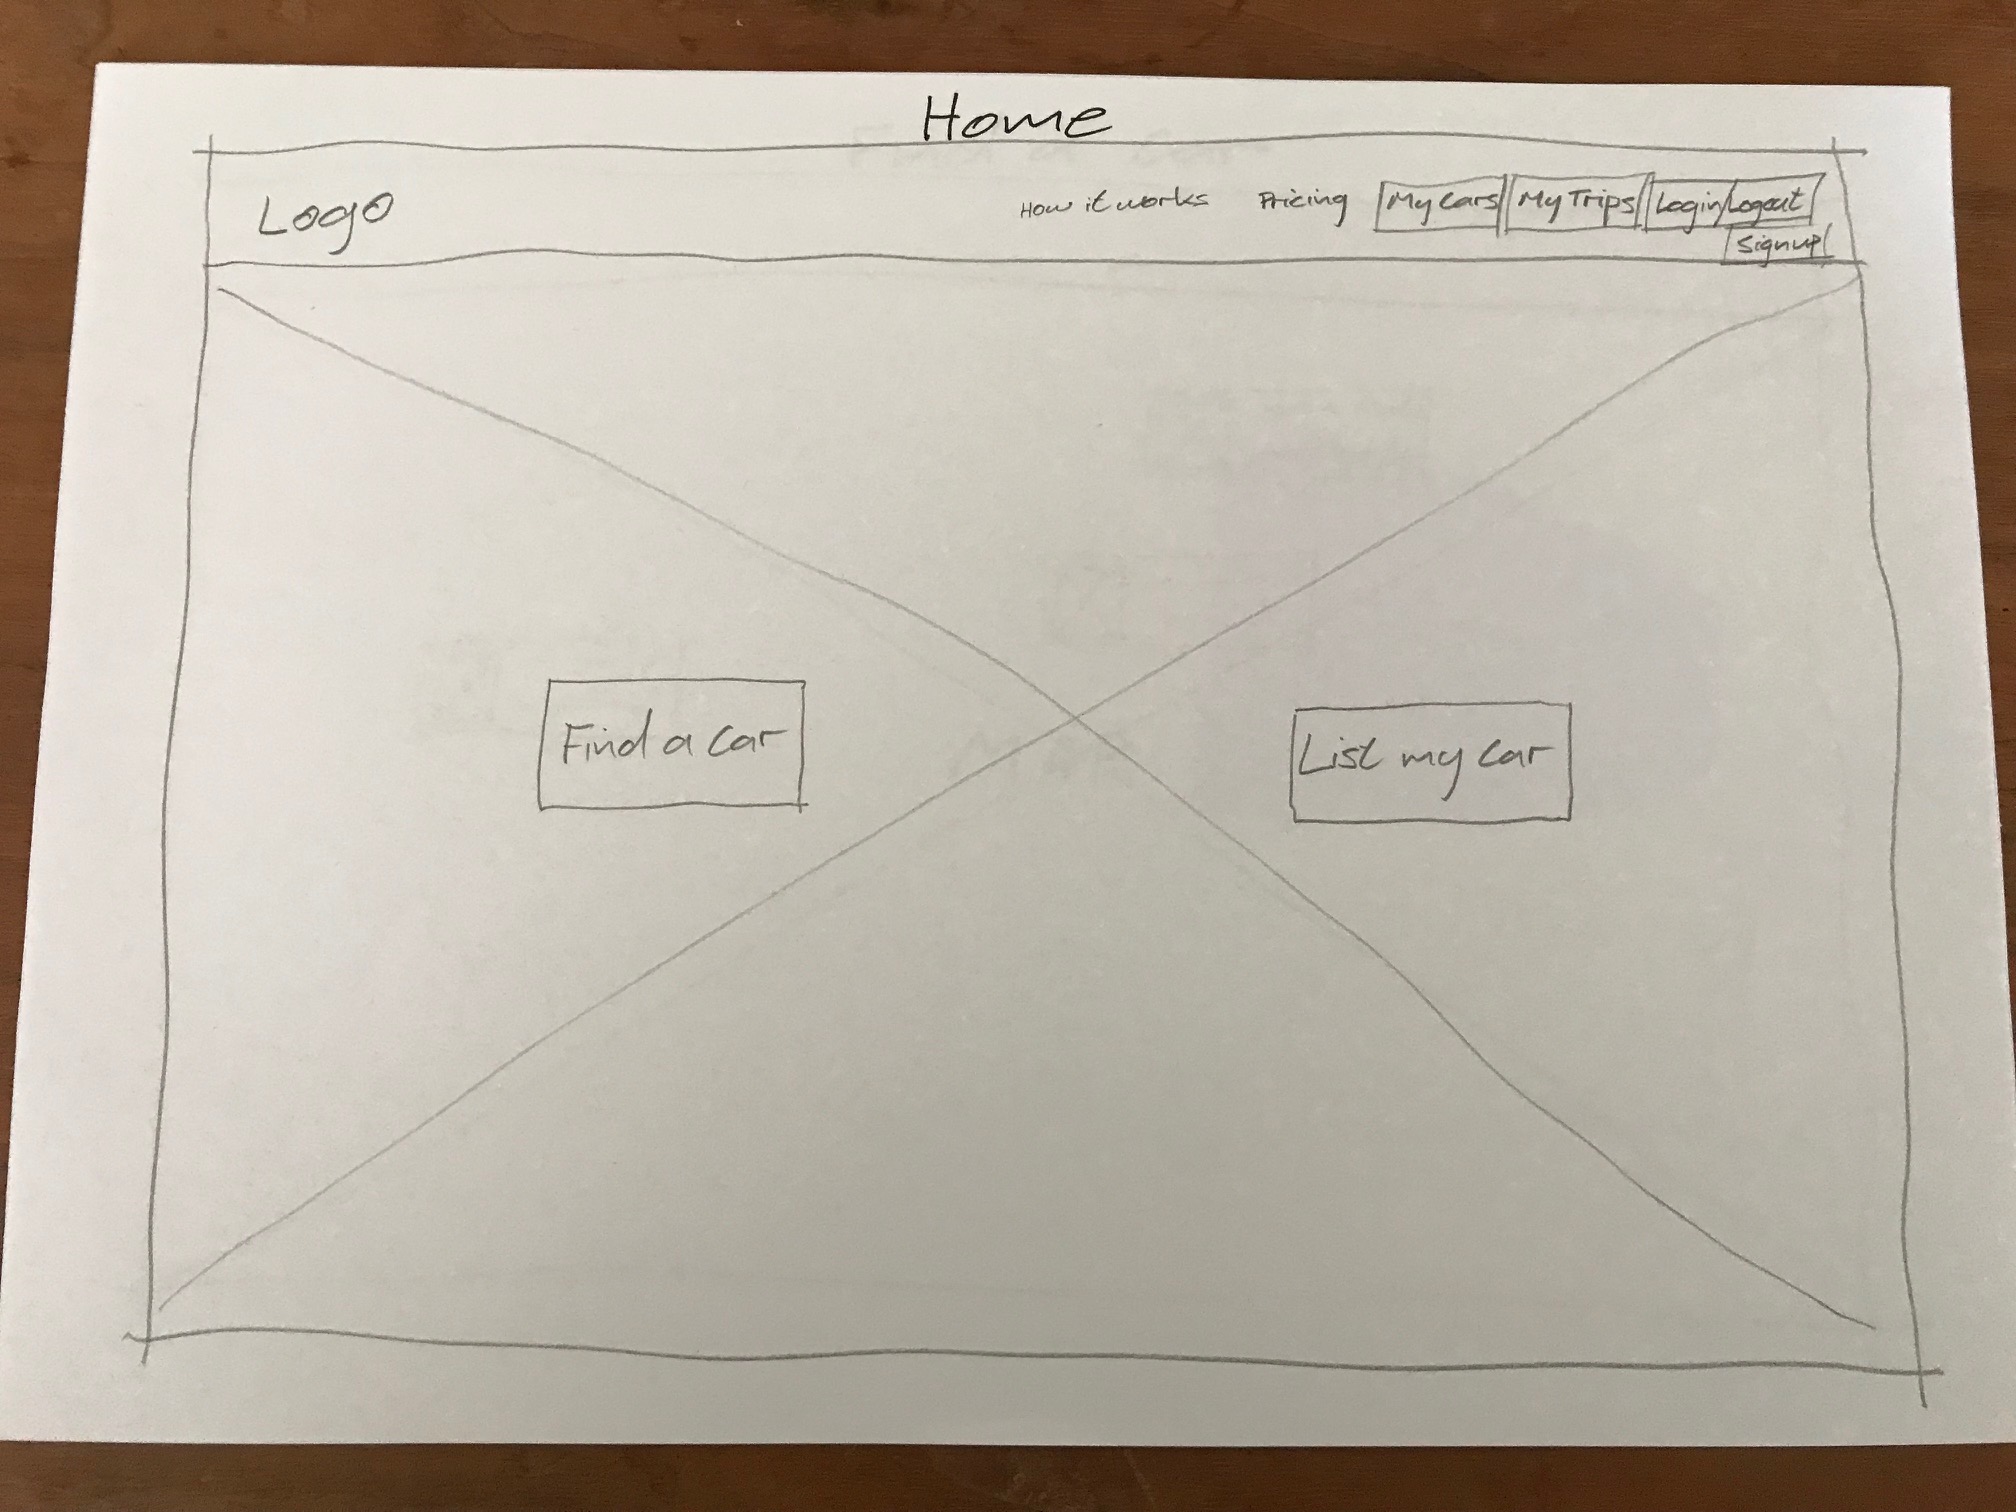 Home
Logo
How it works Pricing My Cars My Trips Login/Logout
Signup
Find a car
List my car